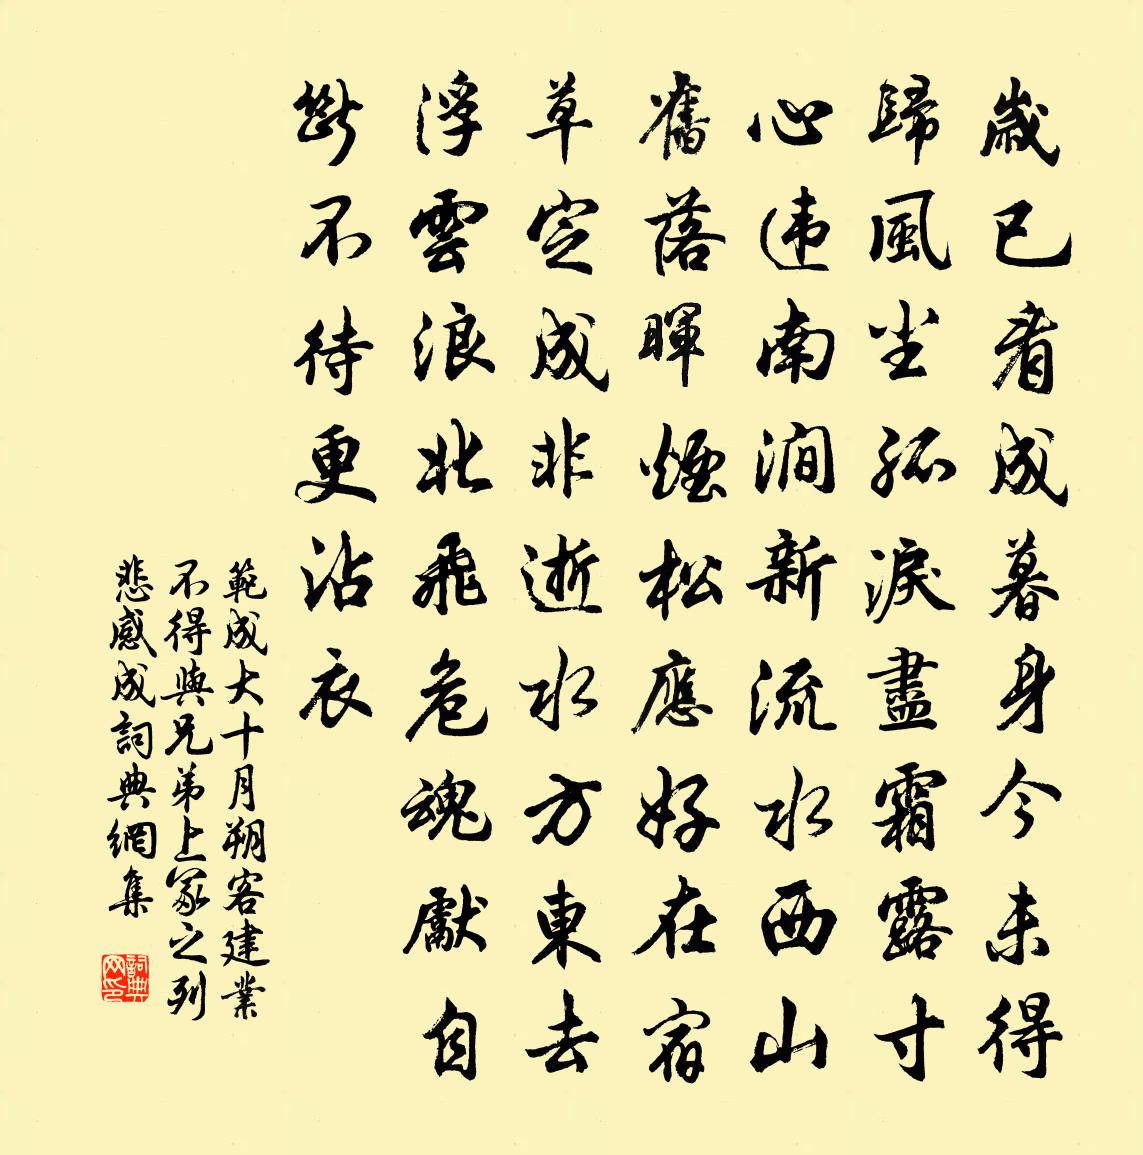 歲已看成暮身今未得
歸風坐孤淚盡霜露寸
心违南澗新流水西山
舊落暉煙松應好在宿
草定成非逝水方東去
浮雲浪北飛危魂獻自
斷不待更沾衣
範成大十月朔客建業
不得與兄弟上冢之列
悲感成詞典網集
詞典
网印